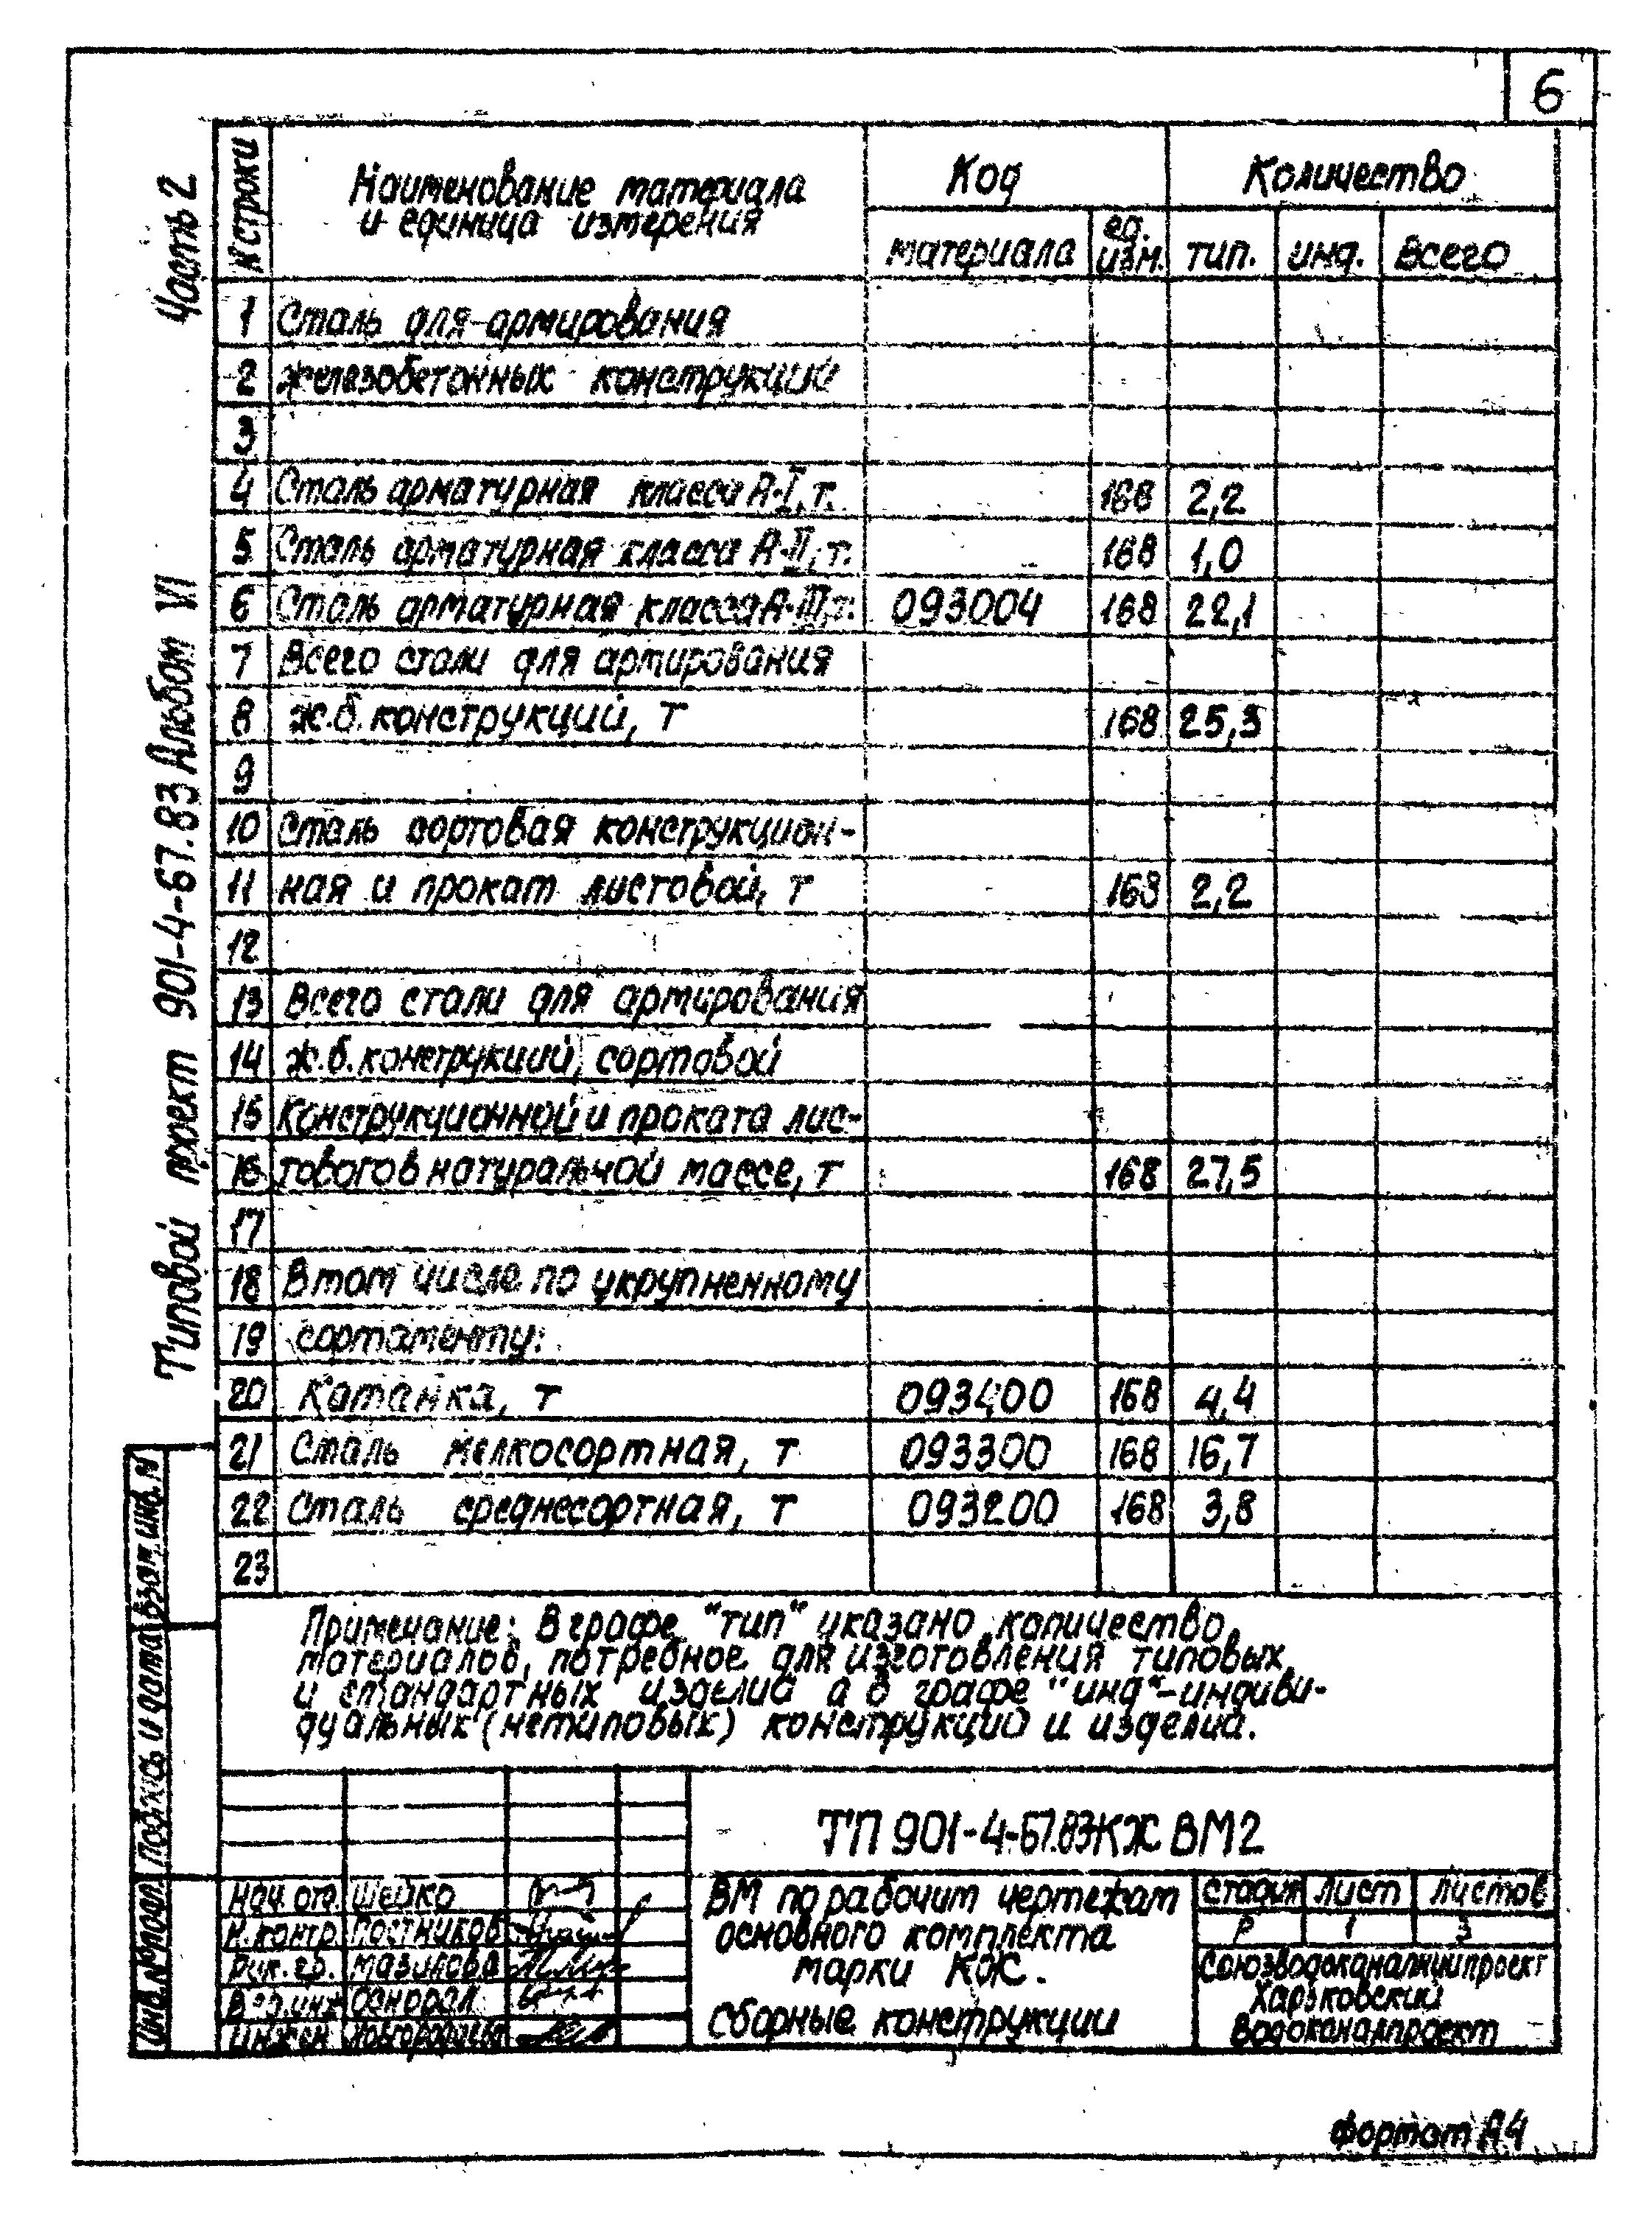 6
Часть 2
Типовой проект 901-4-67.83 Альбом VI
N строки
Наименование материала
и единица измерения
Код
Количество
материала
ед. изм.
тип.
инд.
всего
1 Сталь для армирования
2 железобетонных конструкций
3
4 Сталь арматурная класса А-I, т. 168 2,2
5 Сталь арматурная класса А-II, т. 168 1,0
6 Сталь арматурная класса А-III, т. 093004 168 22,1
7 Всего стали для армирования
8 ж.б. конструкций, т 168 25,3
9
10 Сталь сортовая конструкцион-
11 ная и прокат листовой, т 168 2,2
12
13 Всего стали для армирования
14 ж.б. конструкций, сортовой
15 конструкционной и проката лис-
16 тового в натуральной массе, т 168 27,5
17
18 В том числе по укрупненному
19 сортаменту:
20 Катанка, т 093400 168 4,4
21 Сталь мелкосортная, т 093300 168 16,7
22 Сталь среднесортная, т 093200 168 3,8
23
Примечание: В графе "тип" указано количество
материалов, потребное для изготовления типовых
и стандартных изделий а в графе "инд"-индиви-
дуальных (нетиповых) конструкций и изделий.
Взам. инв. N
Подпись и дата
Инв. № подл.
ТП 901-4-67.83 КЖ ВМ2
Нач. отд. Шейко
Н. контр. Постников
Рук. гр.
Вед. инж
Инжен
ВМ по рабочим чертежам
основного комплекта
марки КЖ.
Сборные конструкции
стадия лист листов
Р 1 3
Союзводоканалниипроект
Харьковский
Водоканалпроект
Формат А4